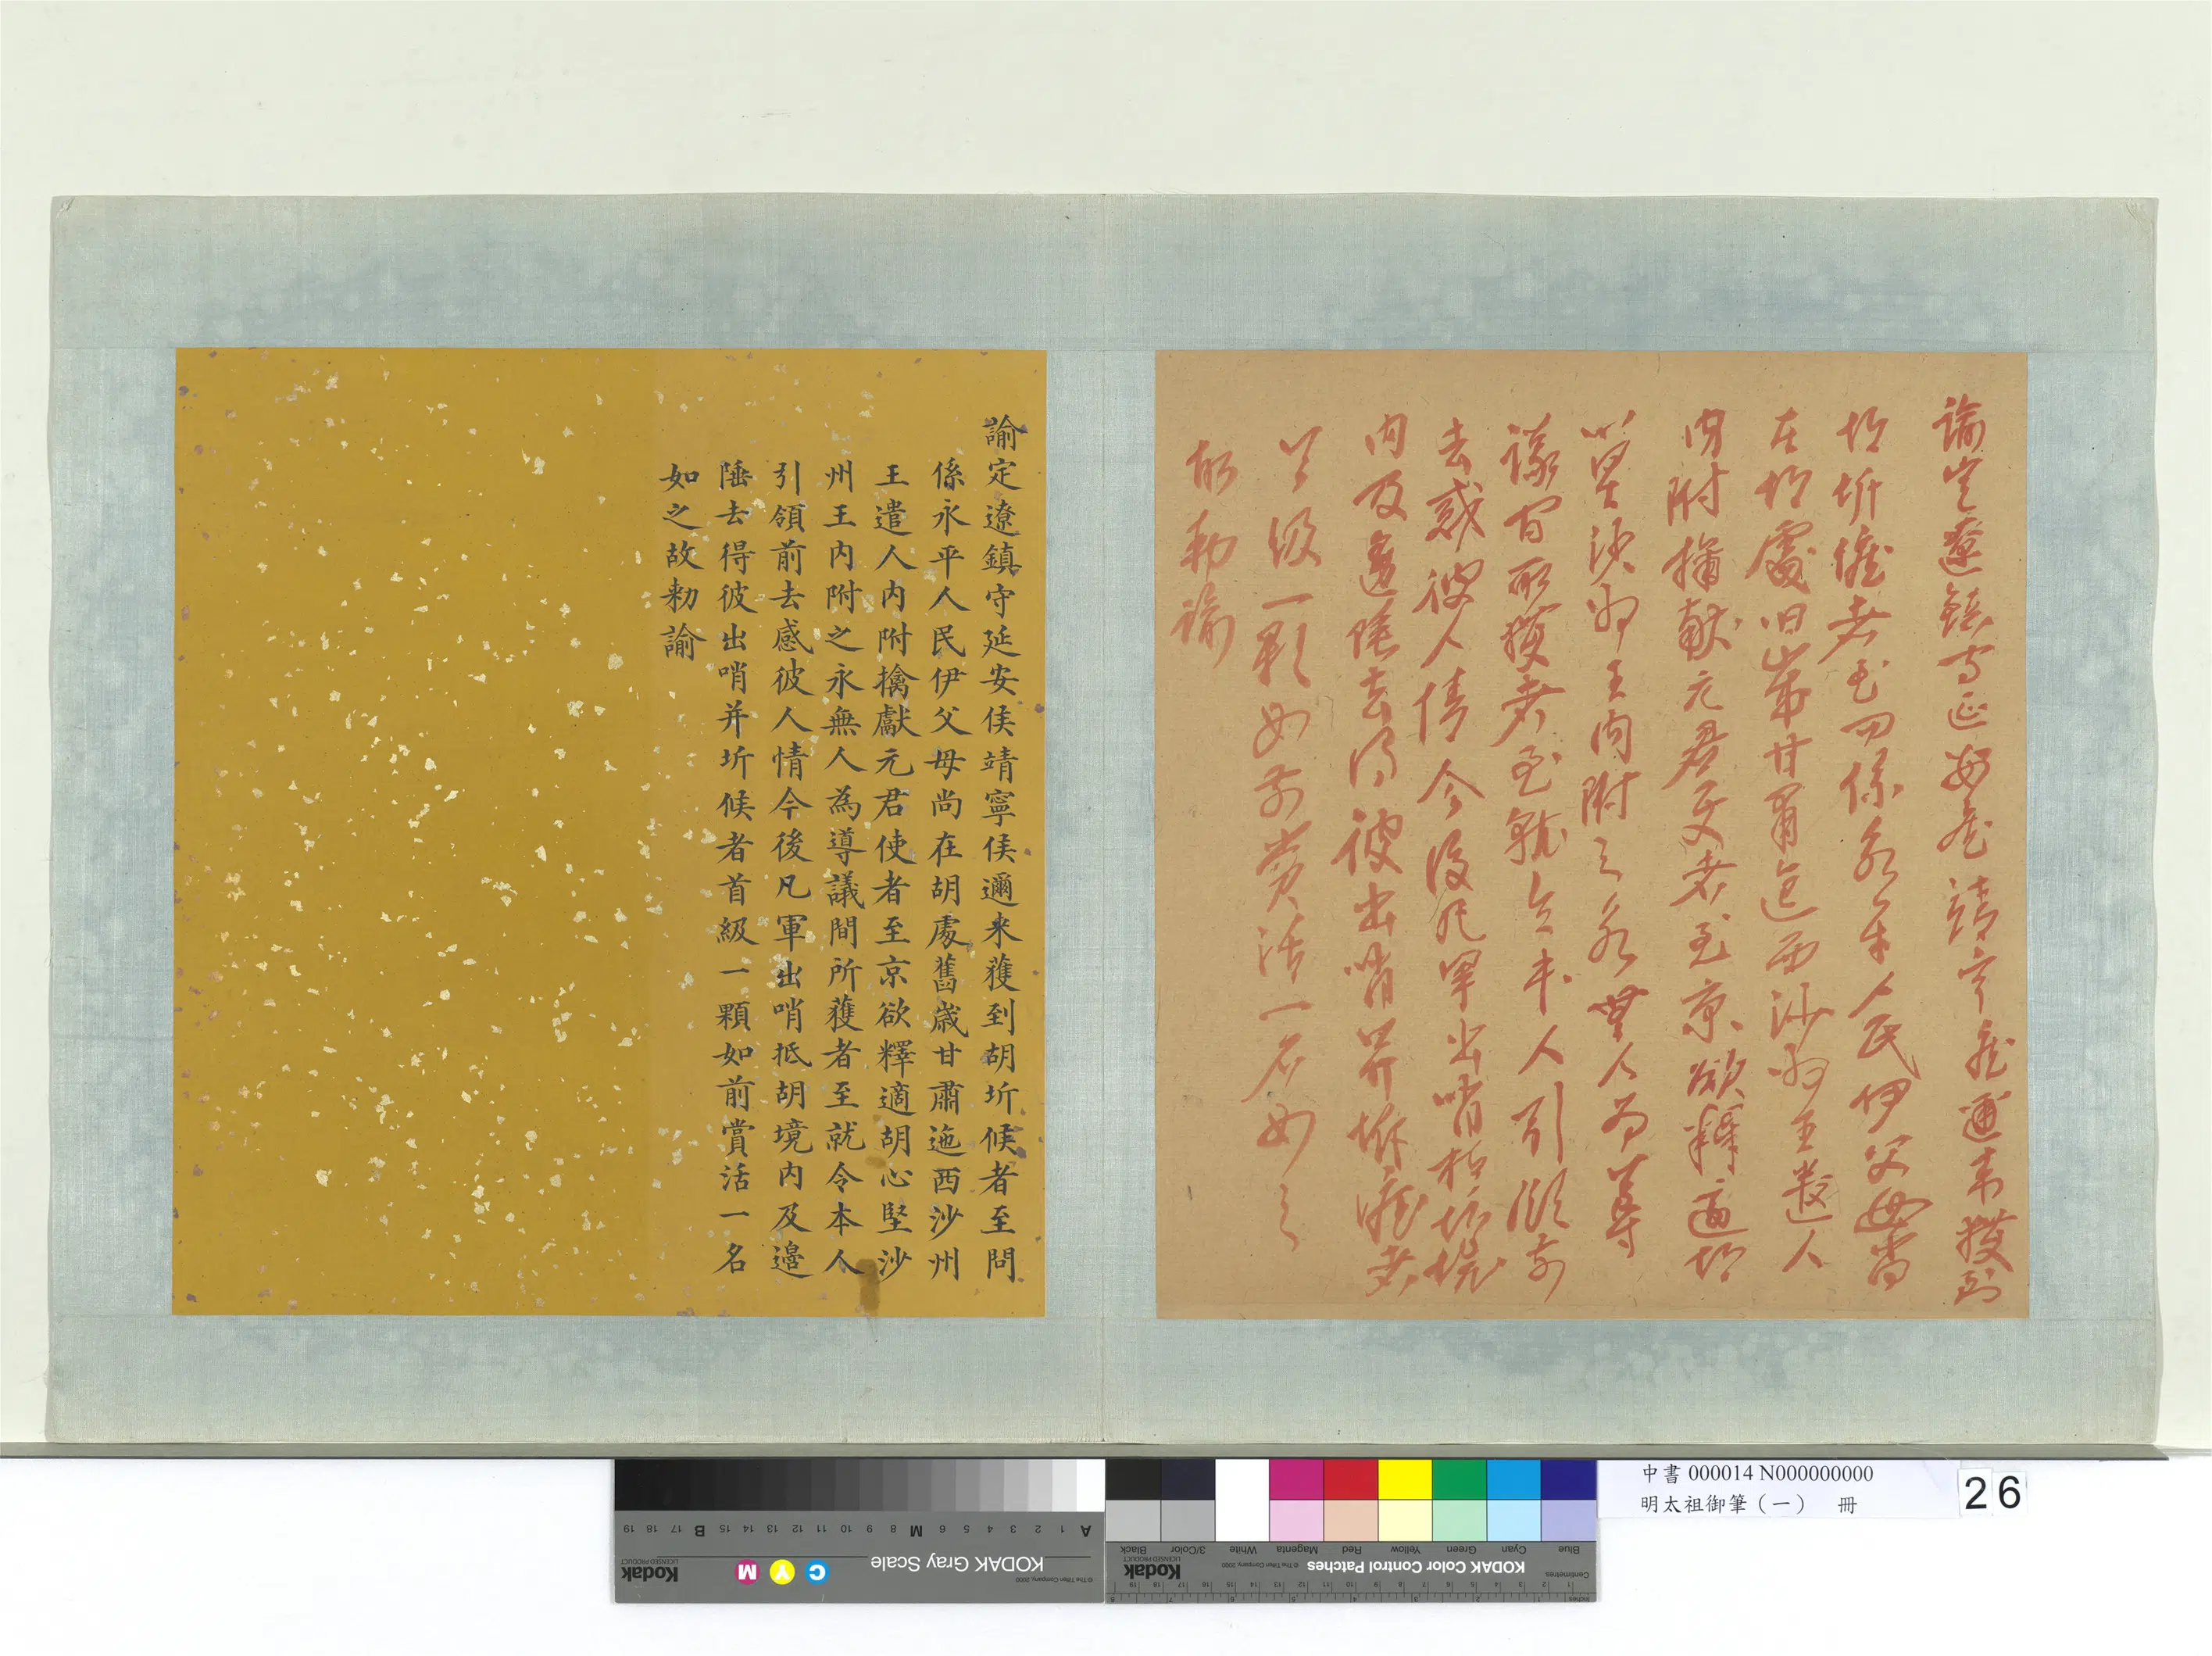 諭定遼鎮守延安侯靖寧侯邇来獲到
胡圻候者至问係永平人民伊父母尚
在胡處旧歲甘肅迤西沙州王遣人
内附擒献元君使者至京欲釋適胡
心堅沙州王内附之永無人為導
議间所獲者至就令本人引領前
去惑彼人情今後凡軍出哨抵胡境
内及邊陲去得彼出哨并圻候者
首級一顆如前賞活一名如之
故勅諭
諭定遼鎮守延安侯靖寧侯邇来獲到胡圻候者至問
係永平人民伊父母尚在胡處舊歲甘肅迤西沙州
王遣人内附擒獻元君使者至京欲釋適胡心堅沙
州王内附之永無人為導議間所獲者至就令本人
引領前去感彼人情今後凡軍出哨抵胡境内及邊
陲去得彼出哨并圻候者首級一顆如前賞活一名
如之故勑諭
中書 000014 N000000000
明太祖御筆（一） 冊
26
KODAK Color Control Patches
Blue Cyan Green Yellow Red Magenta White 3/Color Black
Kodak
LICENSED PRODUCT
© The Tiffen Company, 2000
Centimetres
Inches
KODAK Gray Scale
C Y M
Kodak
LICENSED PRODUCT
© The Tiffen Company, 2000
A 1 2 3 4 5 6 M 8 9 10 11 12 13 14 15 B 17 18 19